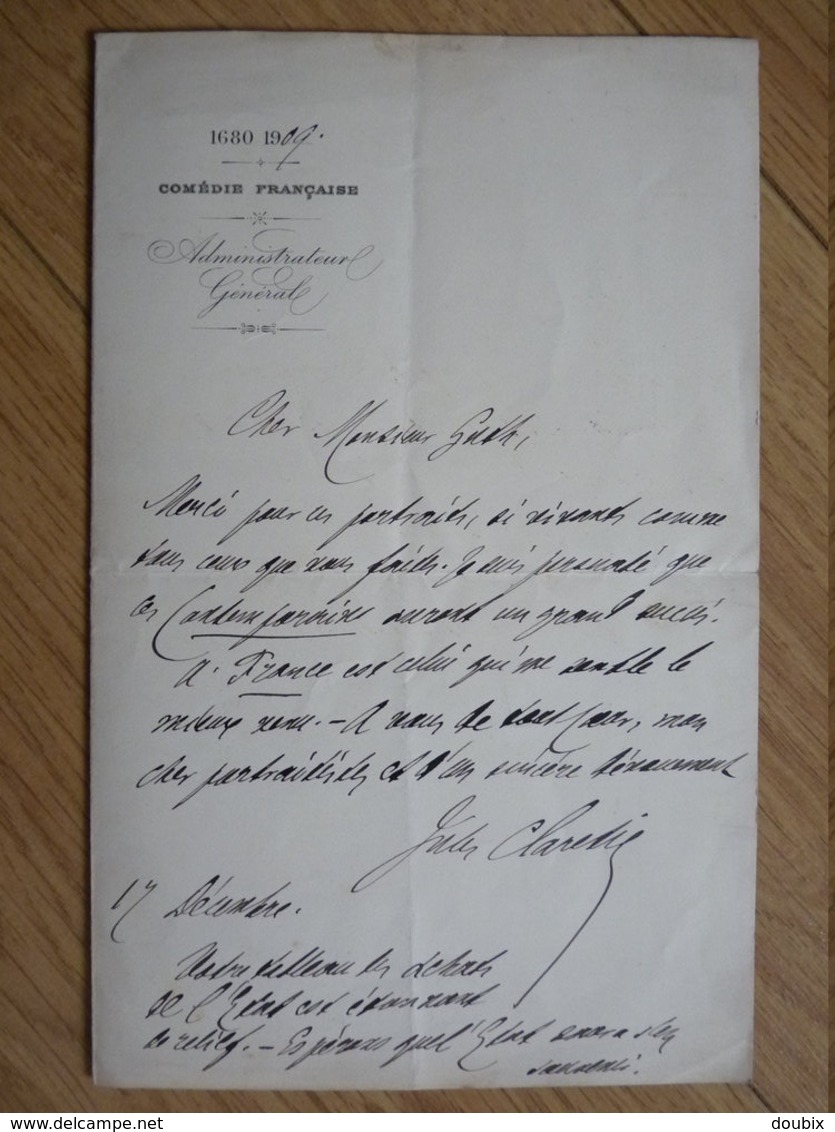 1680 1909.
COMÉDIE FRANÇAISE
Administrateur
Général
Cher Monsieur Guth,
Merci pour ces portraits, si vivants comme
tous ceux que vous faites. Je suis persuadé que
ces Contemporains auront un grand succès.
A. France est celui qui me semble le
mieux venu. - A vous de tout coeur, mon
cher portraitiste, et d'un sincère dévouement
Jules Claretie
17 Décembre.
Votre tableau des Achats
de l'Etat est étonnant
de relief. - Espérons que l'Etat saura s'en
souvenir.
delcampe.net
doubix